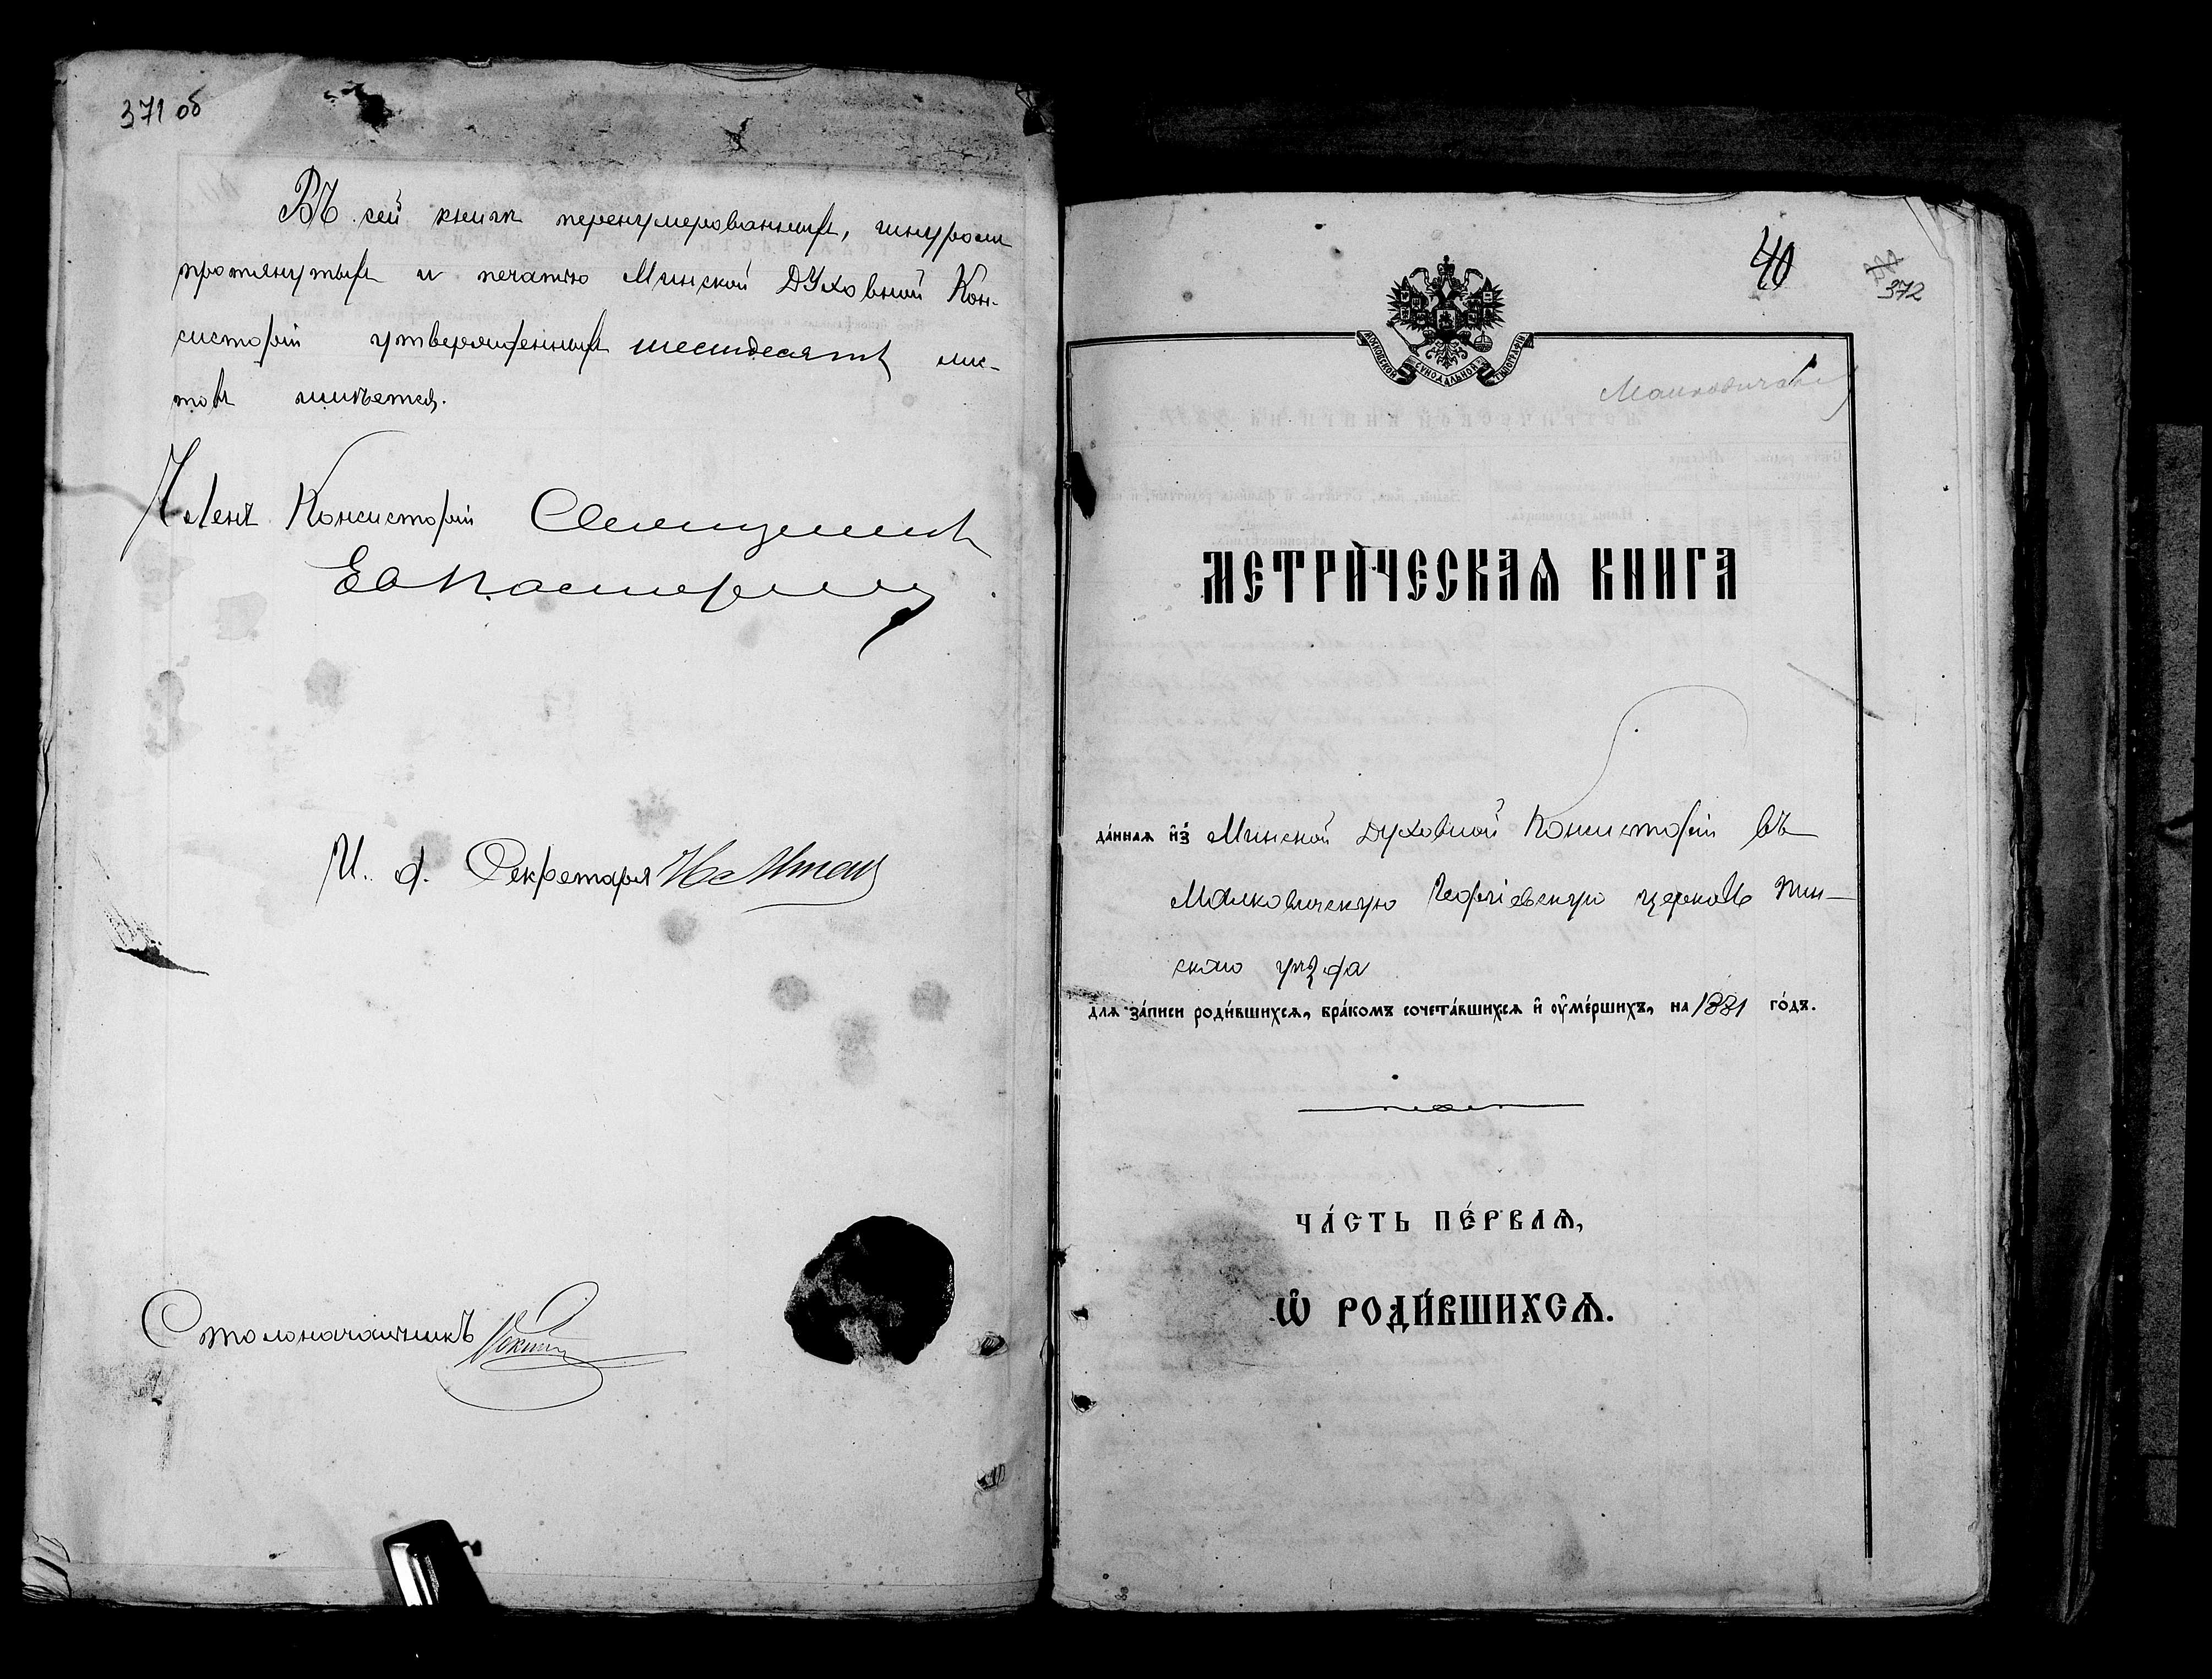 371 об
Въ сей книге перенумерованныхъ, шнуромъ
протянутыхъ и печатью Минской Духовной Кон-
систоріи утвержденныхъ шестьдесятъ лис-
товъ имѣется.
Членъ Консисторіи Священникъ
И. д. Секретаря
Столоначальникъ
40
372
МОСКОВСКОЙ СѴНОДАЛЬНОЙ ТѴПОГРАФІИ
МЕТРИ́ЧЕСКАѦ КНИГА
да́ннаѧ и҆зъ Минской Духовной Консисторіи въ
Малковичскую Георгіевскую церковь Пин-
скаго уѣзда
для за́писи роди́вшихсѧ, бра́комъ сочета́вшихсѧ и҆ ᲂу҆ме́ршихъ, на 1881 го́дъ.
ЧА́СТЬ ПЕ́РВАѦ,
Ѽ РОДИ́ВШИХСѦ.